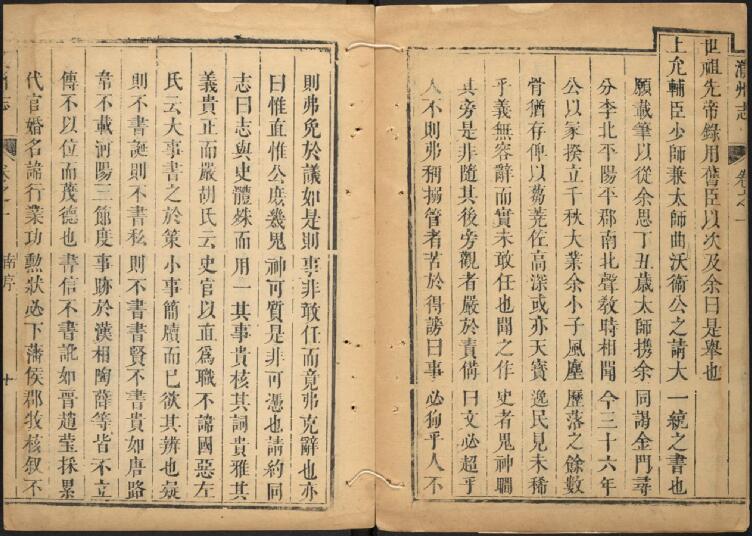 世祖先帝錄用舊臣以次及余曰是舉也
上允輔臣少師兼太師曲沃衛公之請大一統之書也
願載筆以從余思丁丑歲太師携余同謁金門尋
分李北平陽平郡南北聲教時相聞今三十六年
公以家揆立千秋大業余小子風塵歷落之餘數
骨猶存俾以蒭蕘佐高深或亦天寶逸民見未稀
乎義無容辭而實未敢任也聞之作史者鬼神瞷
其旁是非隨其後旁觀者嚴於責備曰文必超乎
人不則弗稱搦管者苦於得謗曰事必狥乎人不
則弗免於議如是則事非敢任而竟弗克辭也亦
曰惟直惟公庶幾鬼神可質是非可憑也請約同
志曰志與史體殊而用一其事貴核其詞貴雅其
義貴正而嚴胡氏云史官以直爲職不諱國惡左
氏云大事書之於策小事簡牘而已欲其辨也疑
則不書誕則不書私則不書書賢不書貴如唐路
韋不載河陽三節度事跡於漢相陶薛等皆不立
傳不以位而茂德也書信不書訛如晋趙莹採累
代官婚名諱行業功勲狀必下藩侯郡牧核叙不
州志
舊序
十